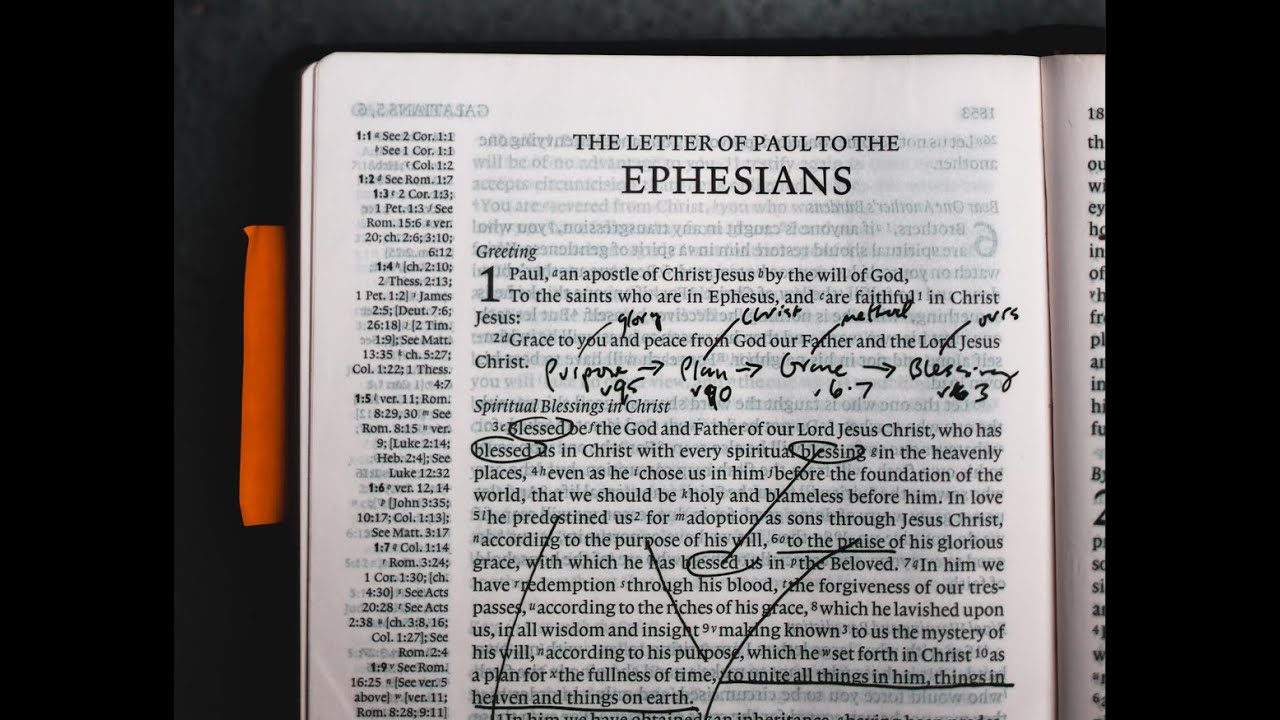 THE LETTER OF PAUL TO THE
EPHESIANS
1:1 a See 2 Cor. 1:1
b See 1 Cor. 1:1
c Col. 1:2
1:2 d See Rom. 1:7
1:3 e 2 Cor. 1:3;
1 Pet. 1:3 f See
Rom. 15:6 g ver.
20; ch. 2:6; 3:10;
6:12
1:4 h [ch. 2:10;
2 Thess. 2:13;
1 Pet. 1:2] i James
2:5; [Deut. 7:6;
26:18] j [2 Tim.
1:9]; See Matt.
13:35 k ch. 5:27;
Col. 1:22; 1 Thess.
4:7
1:5 l ver. 11; Rom.
8:29, 30 m See
Rom. 8:15 n ver.
9; [Luke 2:14;
Heb. 2:4]; See
Luke 12:32
1:6 o ver. 12, 14
p [John 3:35;
10:17; Col. 1:13];
See Matt. 3:17
1:7 q Col. 1:14
r Rom. 3:24;
1 Cor. 1:30; [ch.
4:30] s See Acts
20:28 t See Acts
2:38 u [ch. 3:8, 16;
Col. 1:27]; See
Rom. 2:4
1:9 v See Rom.
16:25 n [See ver. 5
above] w [ver. 11;
Rom. 8:28; 9:11]
Greeting
1 Paul, a an apostle of Christ Jesus b by the will of God,
To the saints who are in Ephesus, and c are faithful 1 in Christ
Jesus:
glory Christ method ours
2 d Grace to you and peace from God our Father and the Lord Jesus
Christ.
Purpose → Plan → Grace → Blessing
v 6-7
Spiritual Blessings in Christ
3 e Blessed be f the God and Father of our Lord Jesus Christ, who has
blessed us in Christ with every spiritual blessing g in the heavenly
places, 4 h even as he i chose us in him j before the foundation of the
world, that we should be k holy and blameless before him. In love
5 l he predestined us 2 for m adoption as sons through Jesus Christ,
n according to the purpose of his will, 6 o to the praise of his glorious
grace, with which he has blessed us in p the Beloved. 7 q In him we
have r redemption s through his blood, t the forgiveness of our tres-
passes, u according to the riches of his grace, 8 which he lavished upon
us, in all wisdom and insight 9 v making known 3 to us the mystery of
his will, n according to his purpose, which he w set forth in Christ 10 as
a plan for x the fullness of time, y to unite all things in him, things in
heaven and things on earth.
11 In him we have obtained an inheritance